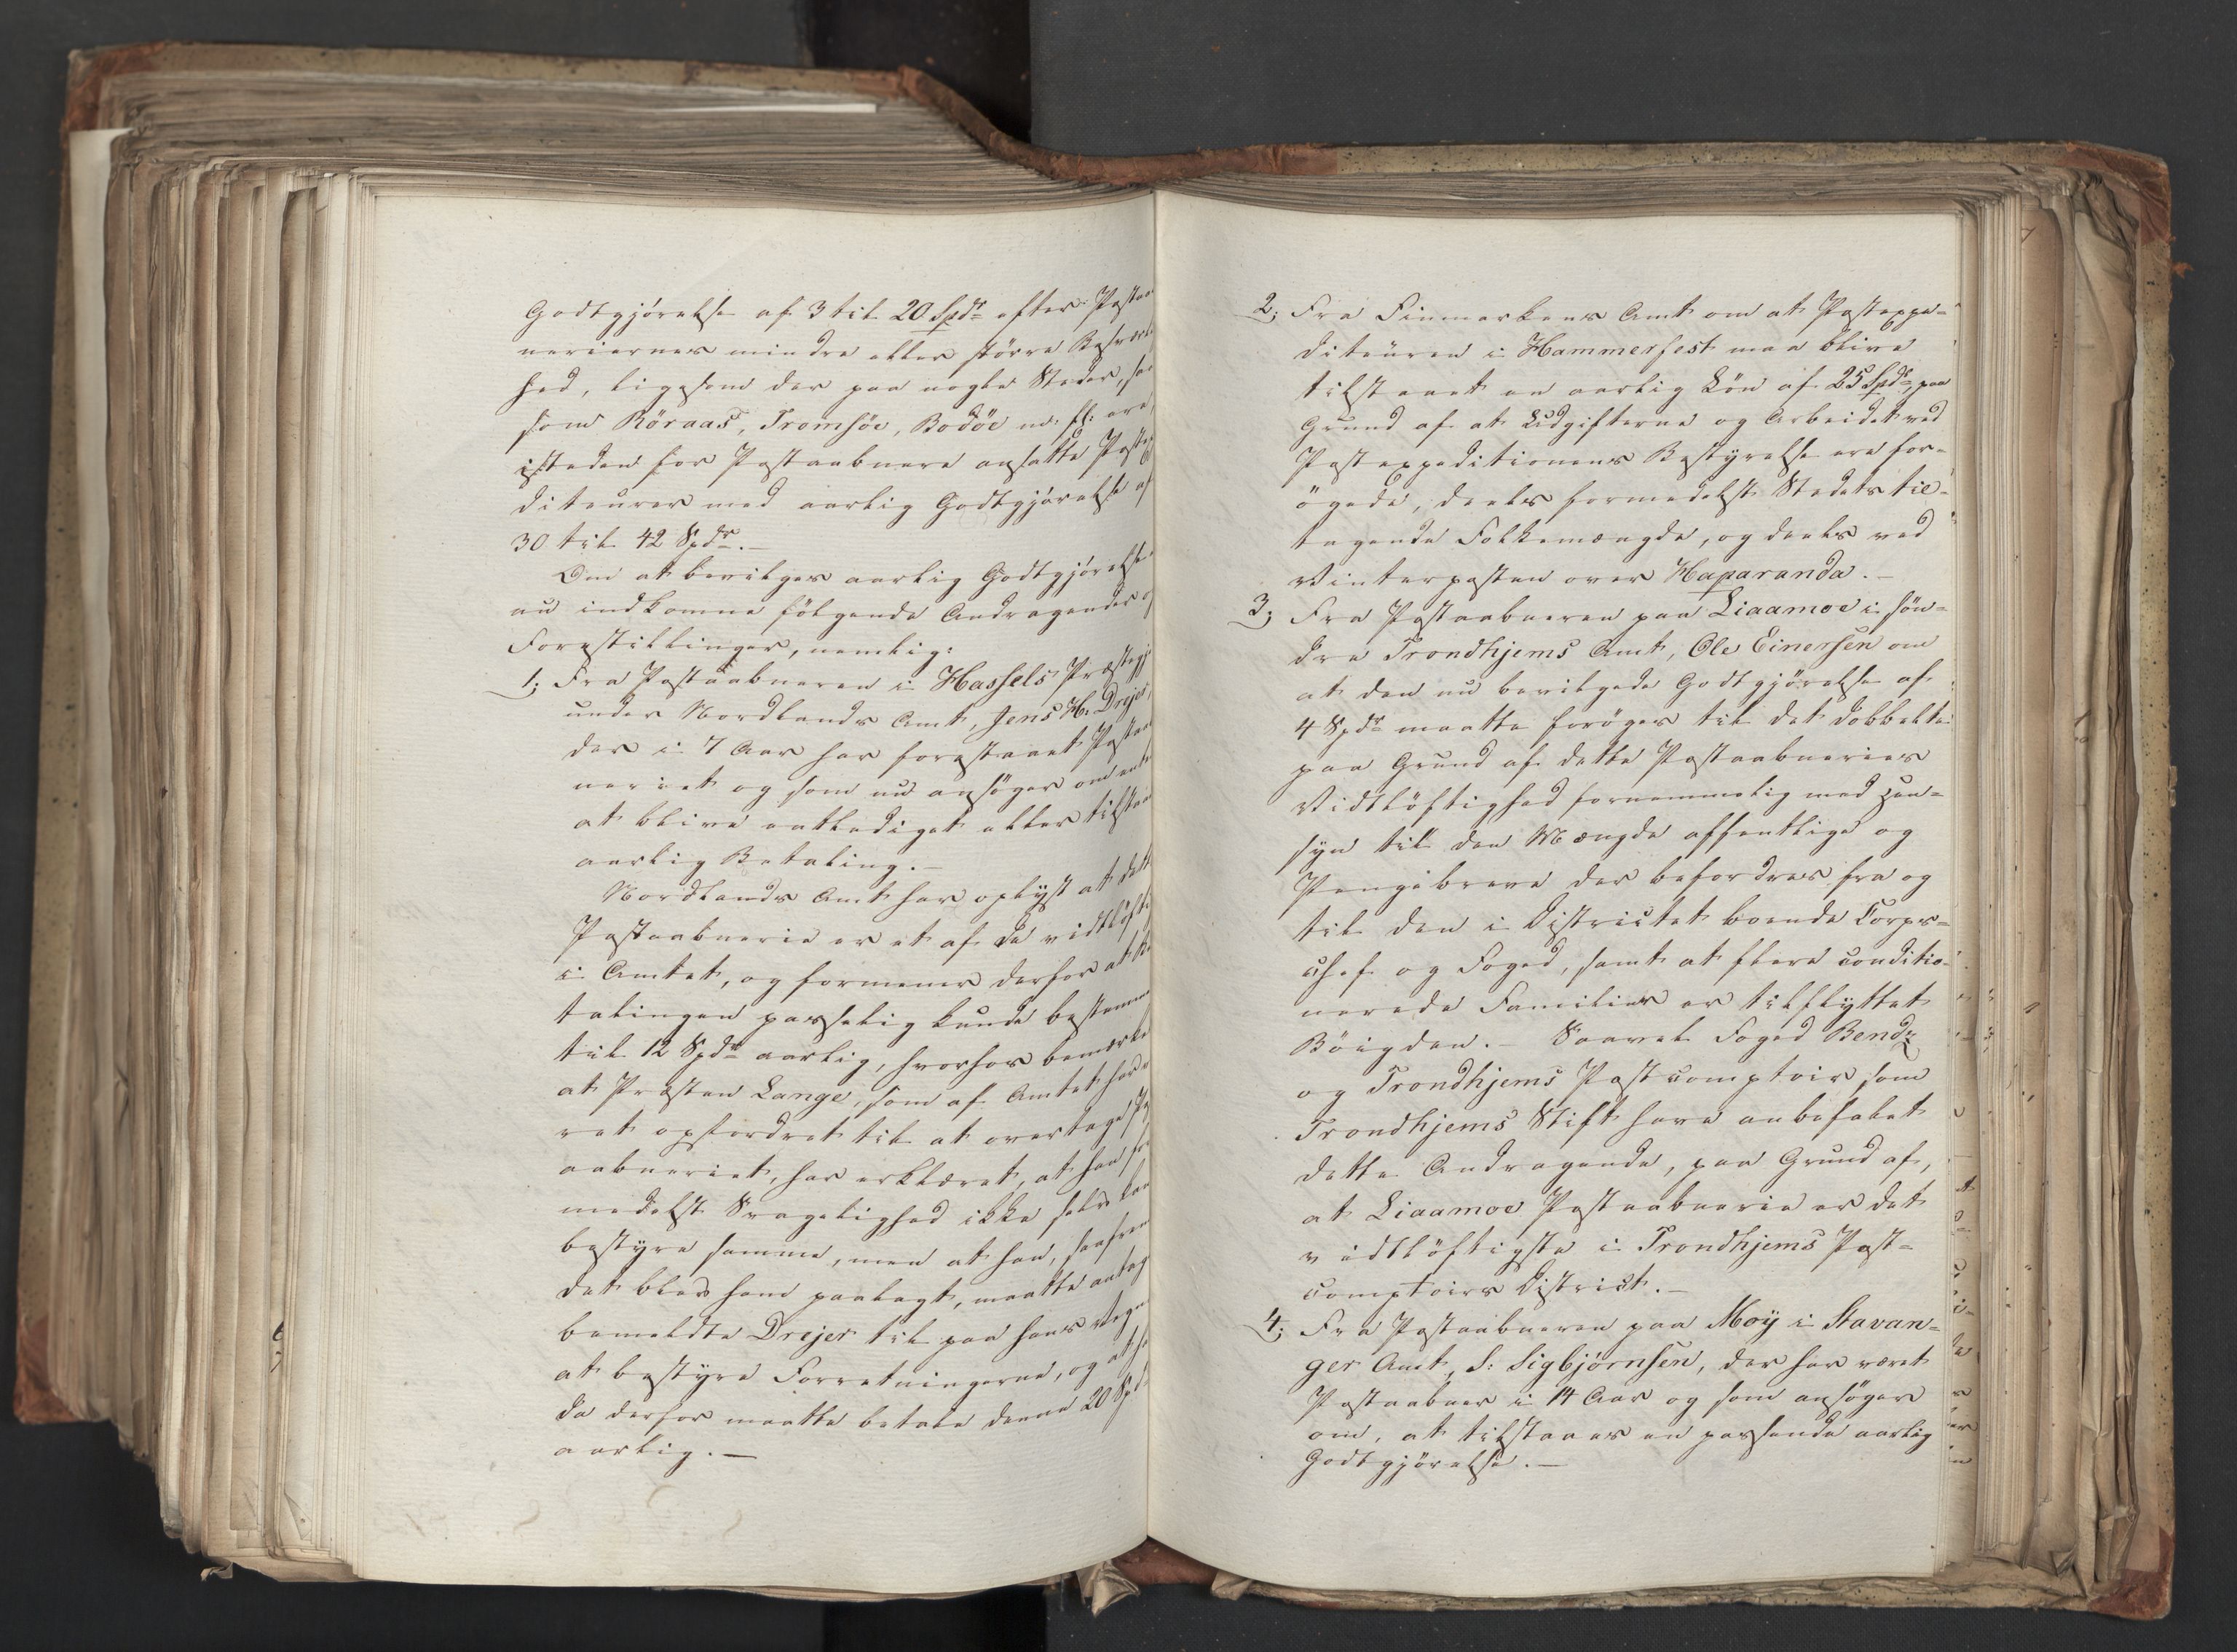 Godtgjörelse af 3 til 20 Spdr efter Postaa
neriernes mindre eller större Besvær
hed, ligesom der paa nogle Steder, saa
som Röraas, Tromsöe, Bodöe m. fl. ere
istedenfor Postaabnere ansatte Postex
diteurer med aarlig Godtgjörelse af
30 til 42 Spdr. –
Om at bevilges aarlig Godtgjörelse
nu indkomne fölgende Andragender og
Forestillinger, nemlig:
1; Fra Postaabneren i Hassels Præstegje
under Nordlands Amt, Jens H. Drejer,
der i 7 Aar har forestaaet Postaa
neriet og som nu ansöger om ent
at blive entlediget eller tilstaa
aarlig Betaling. –
Nordlands Amt har oplyst at dett
Postaabnerie er et af de vidtlöfti
i Amtet, og formener derfor at Be
talingen passelig kunde bestemm
til 12 Spdr aarlig, hvorhos bemærke
at Præsten Lange, som af Amtet har v
ret opfordret til at overtage Po
aabneriet, har erklæret, at han for
medelst Svagelighed ikke selv kan
bestyre samme, men at han, saafrem
det blev ham paalagt, maatte antag
bemeldte Drejer til paa hans Vegn
at bestyre Forretningerne, og at h
da derfor maatte betale denne 20 Spd
aarlig. –
2; Fra Finmarkens Amt om at Postexpe-
diteuren i Hammerfest maa blive
tilstaaet en aarlig Lön af 25 Spdr, paa
Grund af at Udgifterne og Arbeidet ved
Postexpeditionens Bestyrelse ere for-
ögede, deels formedelst Stedets til-
tagende Folkemængde, og deels ved
Vinterposten over Haparanda. –
3; Fra Postaabneren paa Liaamoe i sön-
dre Trondhjems Amt, Ole Einersen om
at den nu bevilgede Godtgjörelse af
4 Spdr maatte foröges til det dobbelte
paa Grund af dette Postaabneries
Vidtlöftighed fornemmelig med Hen-
syn til den Mængde offentlige og
Pengebreve der befordres fra og
til den i Districtet boende Corps-
chef og Foged, samt at flere conditio-
nerede Familier er tilflyttet
Böigden. – Saavel Foged Bendz
og Trondhjems Postcomptoir som
Trondhjems Stift have anbefalet
dette Andragende, paa Grund af,
at Liaamoe Postaabnerie er det
vidtlöftigste i Trondhjems Post-
comptoirs District. –
4; Fra Postaabneren paa Moÿ i Stavan-
ger Amt, S: Sigbjörnsen, der har været
Postaabner i 14 Aar og som ansöger
om, at tilstaaes en passende aarlig
Godtgjörelse. –